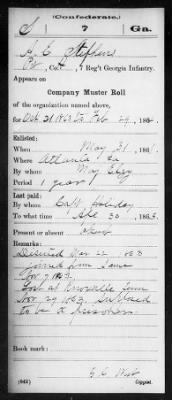 (Confederate.)
S 7 Ga.
H. C. Stephens
Pvt, Co. 7 Reg't Georgia Infantry.
Appears on
Company Muster Roll
of the organization named above,
for Oct 31 1863 to Feb 29, 1864.
Enlisted:
When May 31, 1861.
Where Atlanta Ga
By whom Maj
Period 1 year
Last paid:
By whom Capt Holiday
To what time Apr 30, 1863.
Present or absent
Remarks:
Deserted Mar 22 1863
Joined from same
Nov 7, 1863.
Lost at Knoxville Tenn
Nov 29 1863. Supposed
to be a prisoner.
Book mark:
(642) Copyist.